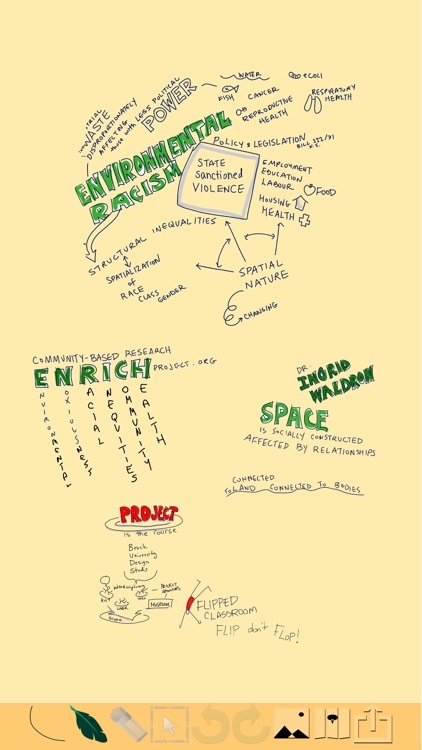 INDUSTRIAL
WASTE
DISPROPORTIONATELY
AFFECTING
those with LESS POLITICAL
POWER
WATER
eColi
FISH
CANCER
RESPIRATORY
HEALTH
REPRODUCTIVE
HEALTH
ENVIRONMENTAL
RACISM
POLICY & LEGISLATION
BILL 111/31
N.S.
STATE
Sanctioned
VIOLENCE
EMPLOYMENT
EDUCATION
LABOUR
FOOD
HOUSING
HEALTH
STRUCTURAL INEQUALITIES
SPATIALIZATION
of
RACE
CLASS GENDER
SPATIAL
NATURE
CHANGING
COMMUNITY-BASED RESEARCH
ENRICH PROJECT.ORG
ENVIRONMENTAL
NOXIOUSNESS
RACIAL
INEQUITIES
COMMUNITY
HEALTH
DR.
INGRID
WALDRON
SPACE
IS SOCIALLY CONSTRUCTED
AFFECTED BY RELATIONSHIPS
CONNECTED
to LAND CONNECTED TO BODIES
PROJECT
is the course
Brock
University
Design
Studio
MUSEUM
FLIPPED
CLASSROOM
FLIP don't FLOP!